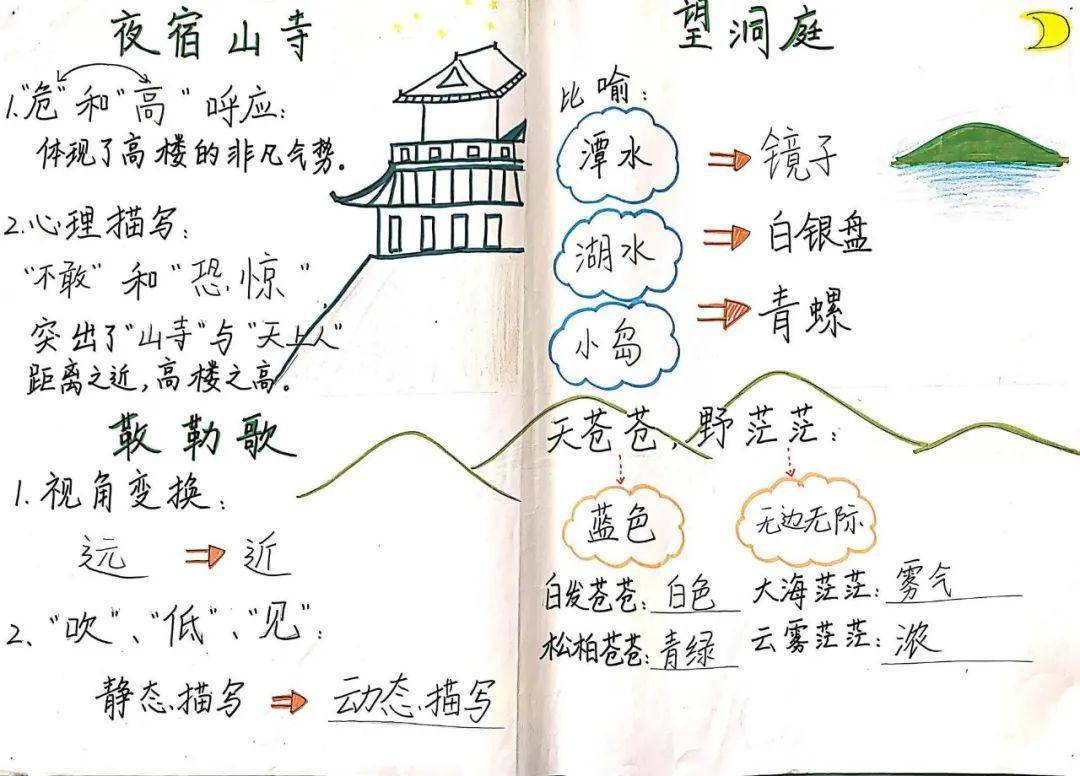 夜宿山寺
1."危"和"高"呼应:
体现了高楼的非凡气势。
2.心理描写:
"不敢"和"恐惊",
突出了"山寺"与"天上人"
距离之近,高楼之高。
望洞庭
比喻:
潭水 镜子
湖水 白银盘
小岛 青螺
敕勒歌
1.视角变换:
远 近
2、"吹"、"低"、"见":
静态描写 动态描写
天苍苍,野茫茫:
蓝色 无边无际
白发苍苍:白色 大海茫茫:雾气
松柏苍苍:青绿 云雾茫茫:浓